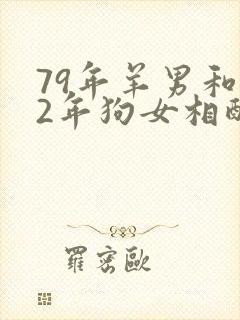 79年羊男和
2年狗女相配
羅密歐